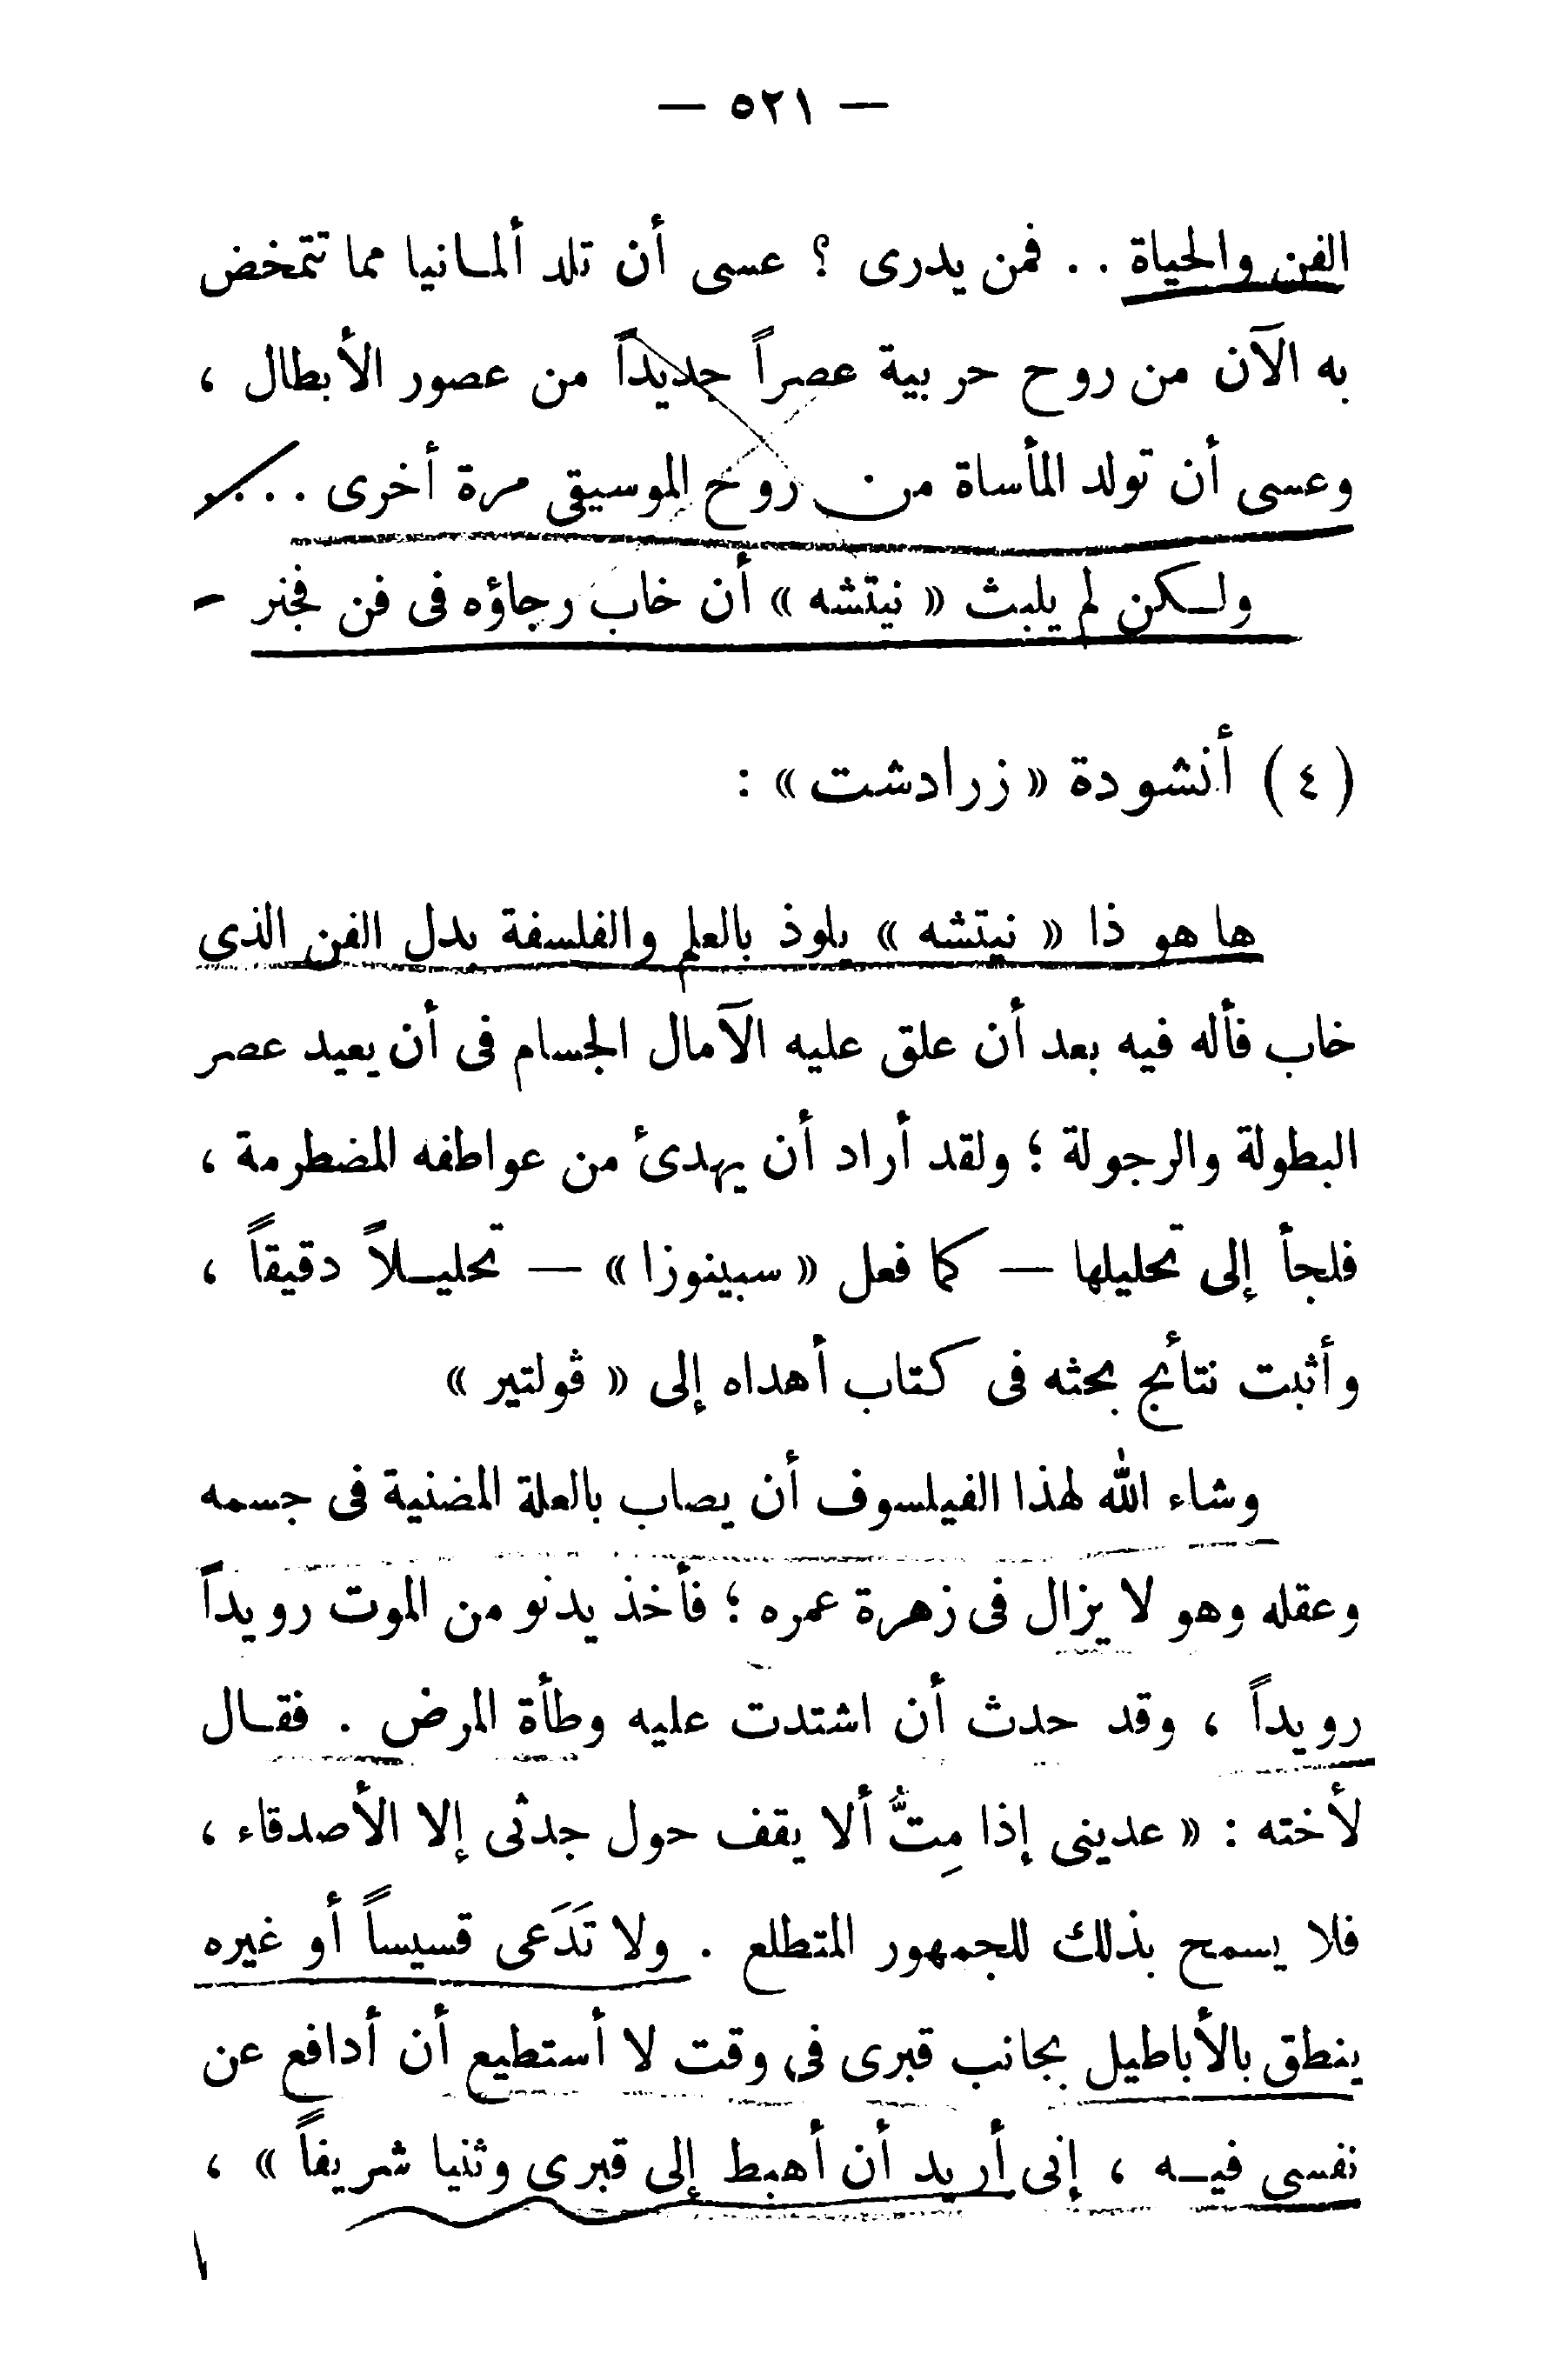 — ٥٢١ —
الفن والحياة . . فمن يدرى ؟ عسى أن تلد ألمـانيا مما تتمخض
به الآن من روح حربية عصراً جديداً من عصور الأبطال ،
وعسى أن تولد المأساة من روح الموسيقى مرة أخرى . . . .
ولـكن لم يلبث « نيتشه » أن خاب رجاؤه فى فن فجنر -
( ٤ ) أنشودة « زرادشت » :
ها هو ذا « نيتشه » يلوذ بالعلم والفلسفة بدل الفن الذى
خاب فأله فيه بعد أن علق عليه الآمال الجسام فى أن يعيد عصر
البطولة والرجولة ؛ ولقد أراد أن يهدئ من عواطفه المضطرمة ،
فلجأ إلى تحليلها — كما فعل « سبينوزا » — تحليـلاً دقيقاً ،
وأثبت نتائج بحثه فى كتاب أهداه إلى « ڤولتير »
وشاء الله لهذا الفيلسوف أن يصاب بالعلة المضنية فى جسمه
وعقله وهو لا يزال فى زهرة عمره ؛ فأخذ يدنو من الموت رويداً
رويداً ، وقد حدث أن اشتدت عليه وطأة المرض . فقـال
لأخته : « عدينى إذا مِتُّ ألا يقف حول جدثى إلا الأصدقاء ،
فلا يسمح بذلك للجمهور المتطلع . ولا تَدَعى قسيساً أو غيره
ينطق بالأباطيل بجانب قبرى فى وقت لا أستطيع أن أدافع عن
نفسى فيـه ، إنى أريد أن أهبط إلى قبرى وثنيا شريفاً » ،